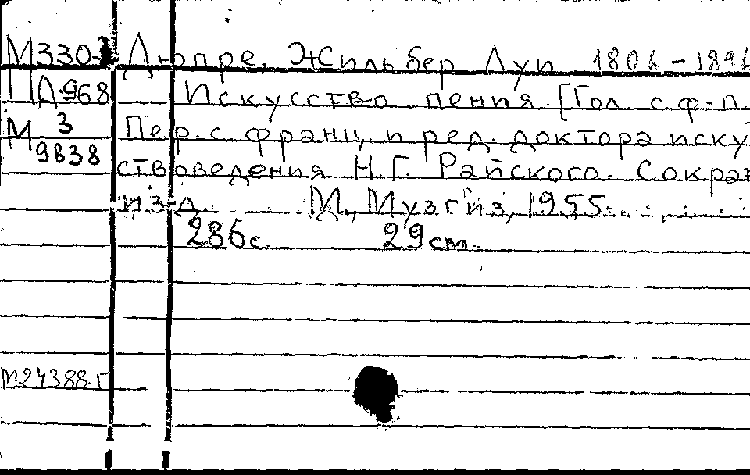 М330-1 Дюпре, Жильбер Луи 1806-1896
ПД 968 Искусство пения [Гол. с. ф-п.
М 3 Пер. с. франц. и ред. доктора иску
9838 ствоведения Н.Г. Райского. Сокращ
изд. М., Музгиз, 1955.
286с. 29см.
М24388-Г